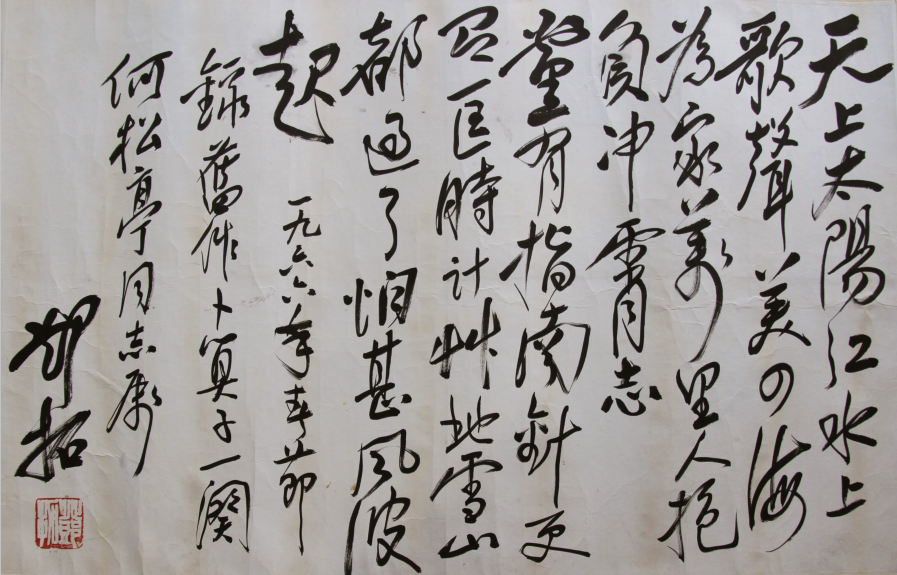 天上太陽紅水上
歌聲美四海
為家萬里人抱
負冲霄志
黨有指南針更
匡時計艸地雪山
都過了怕甚風波
起
一九六六年春節
錄舊作卜算子一闋
何松亭同志屬
鄧拓
鄧拓